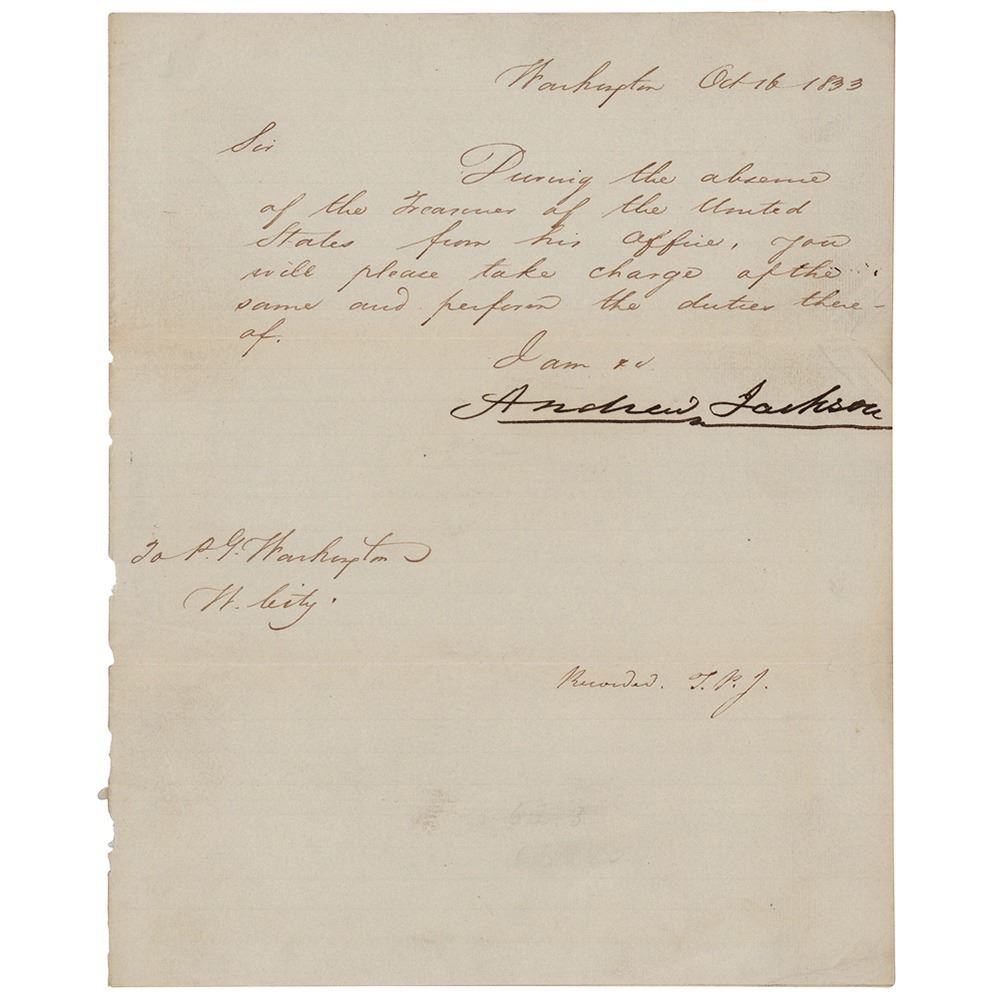 Washington Oct 16 1833
Sir
During the absence
of the Treasurer of the United
States from his Office, you
will please take charge of the
same and perform the duties there-
of.
I am &c
Andrew Jackson
To P. G. Washington
W. City.
Recorded. T. P. J.